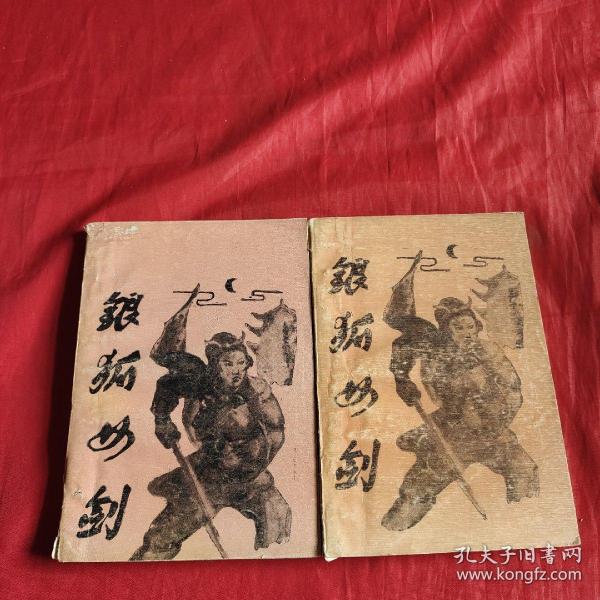 銀狐女剑
銀狐女剑
孔夫子旧书网
www.kongfz.com